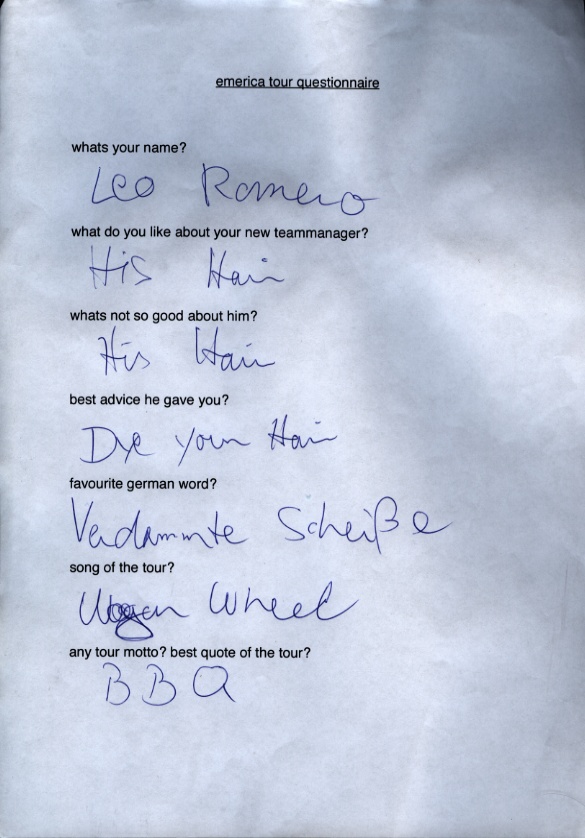 emerica tour questionnaire
whats your name?
Leo Romero
what do you like about your new teammanager?
His Hair
whats not so good about him?
His Hair
best advice he gave you?
Dye your Hair
favourite german word?
Verdammte Scheiße
song of the tour?
Wagon Wheel
any tour motto? best quote of the tour?
BBQ